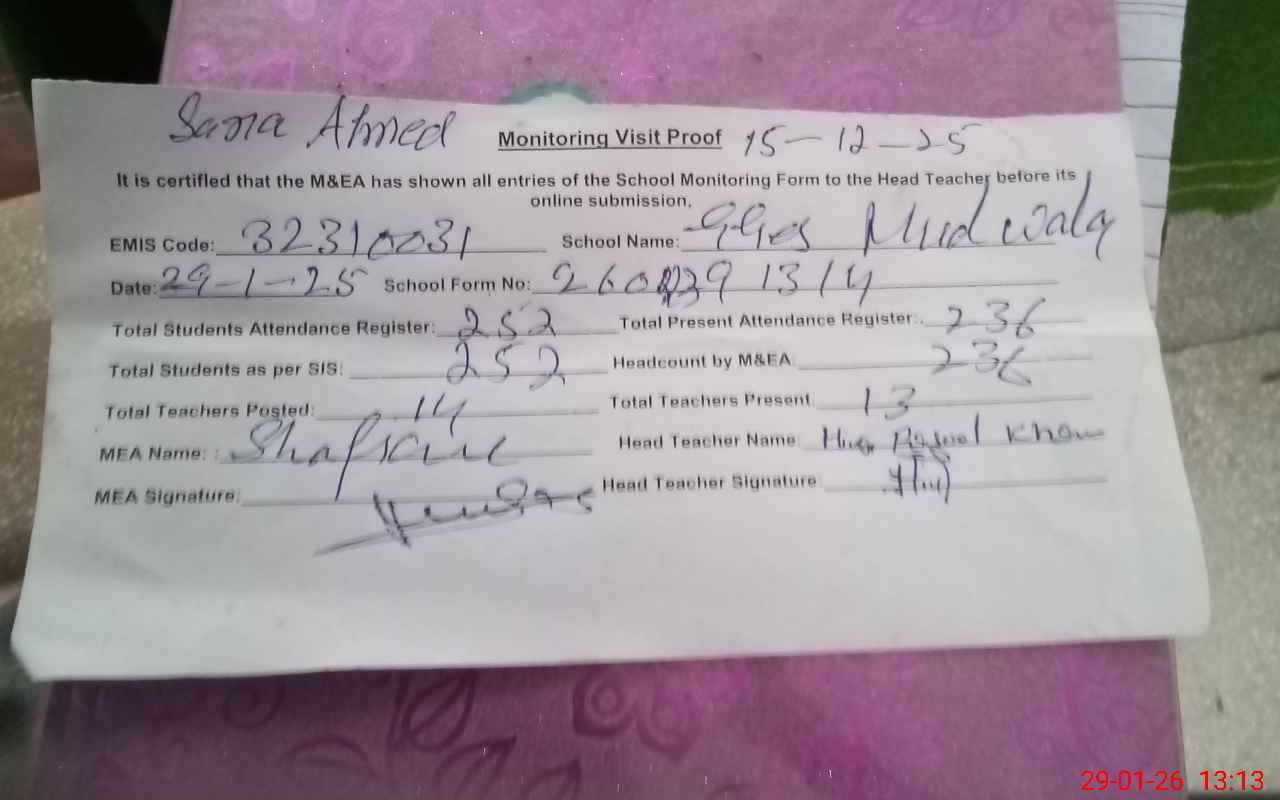 Sana Ahmed Monitoring Visit Proof 15-12-25
It is certified that the M&EA has shown all entries of the School Monitoring Form to the Head Teacher before its
online submission.
EMIS Code: 32310031 School Name: GGES Mud wala
Date: 29-1-25 School Form No: 260 39 1314
Total Students Attendance Register: 252 Total Present Attendance Register: 236
Total Students as per SIS: 252 Headcount by M&EA: 236
Total Teachers Posted: 14 Total Teachers Present 13
MEA Name: : Head Teacher Name Khan
MEA Signature: Head Teacher Signature
29-01-26 13:13